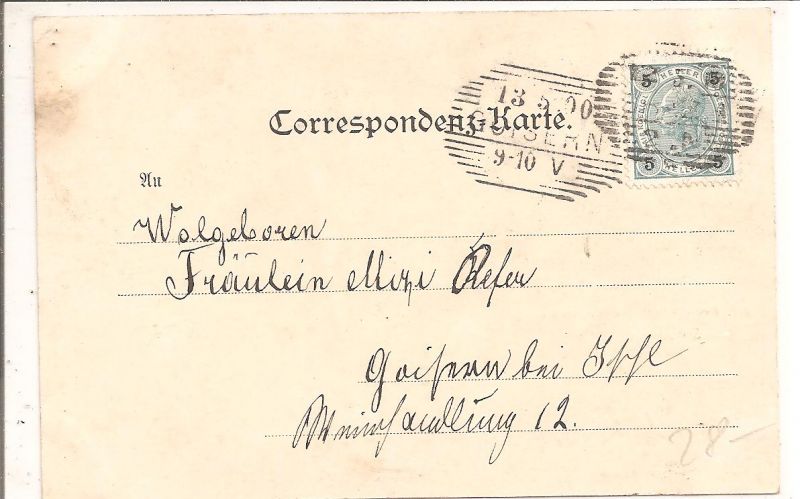 Correspondenz-Karte.
13 5 00
GOISERN
9-10 V
5 HELLER 5
5 HELLER 5
An
Wolgeboren
Fräulein Mizi Refer
Goisern bei Ischl
Weinhandlung 12.
28-